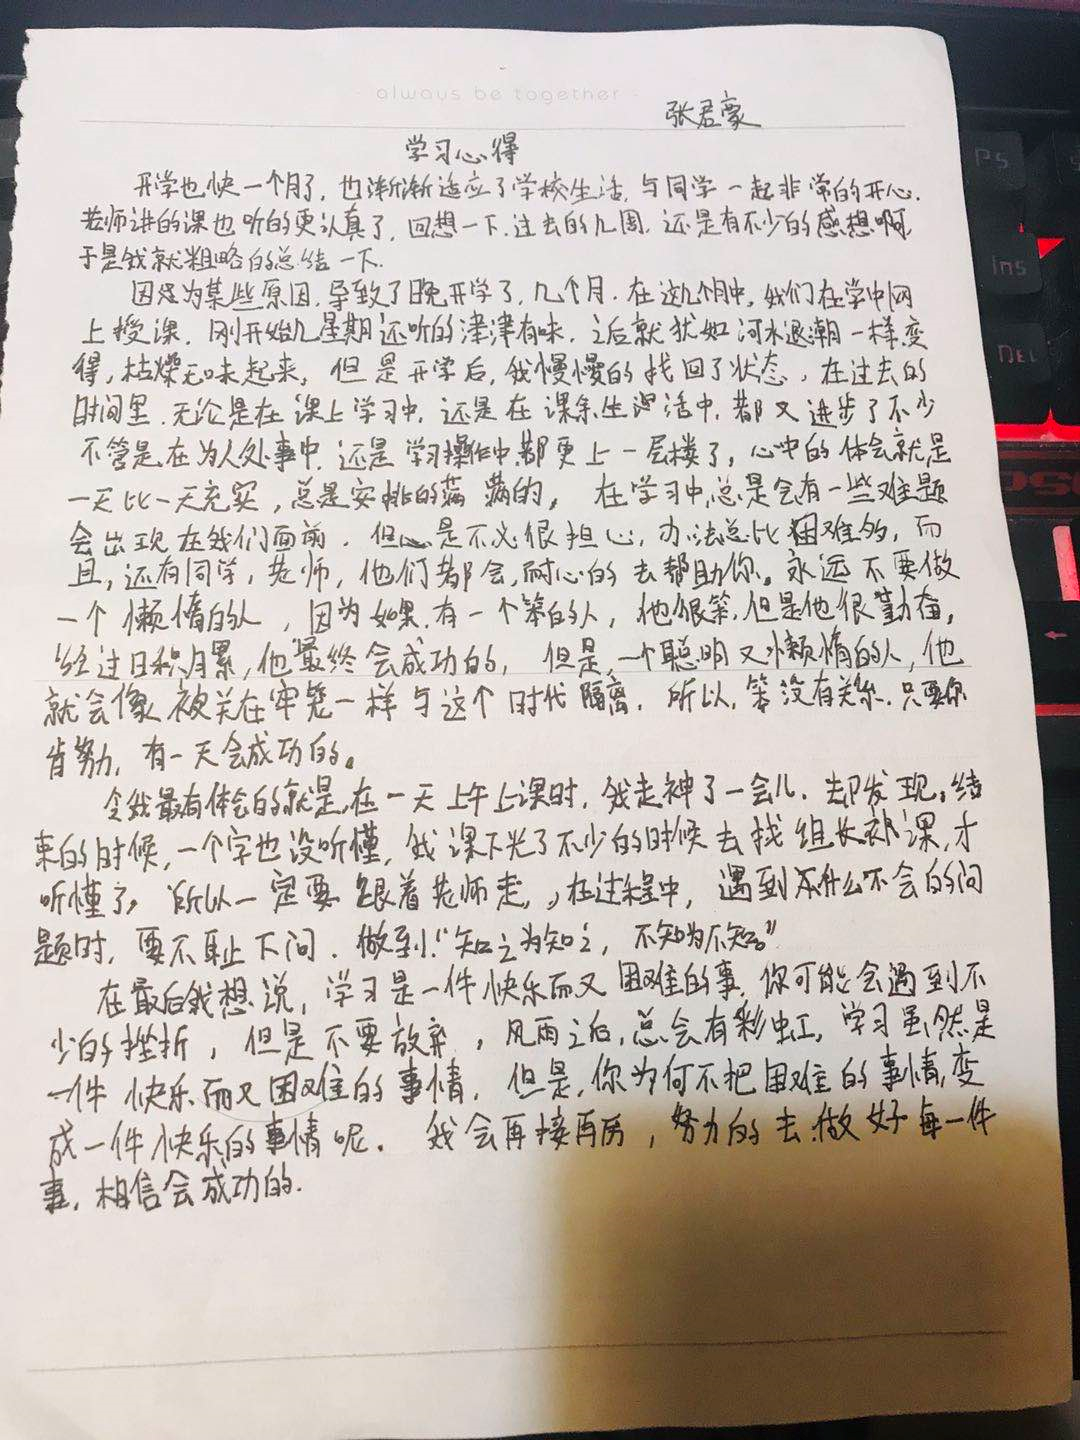 always be together
张君豪
学习心得
开学也快一个月了,也渐渐适应了学校生活,与同学一起非常的开心.
老师讲的课也听的更认真了,回想一下.过去的几周.还是有不少的感想啊,
于是我就粗略的总结一下.
因为某些原因.导致了晚开学了,几个月.在这几个月中,我们在学中网
上授课.刚开始几星期还听的津津有味.之后就犹如河水退潮一样,变
得,枯燥无味起来,但是开学后,我慢慢的找回了状态,在过去的
时间里.无论是在课上学习中.还是在课余生活中,都又进步了不少
不管是在为人处事中.还是学习操作中,都更上一层楼了,心中的体会就是
一天比一天充实,总是安排的满满的,在学习中,总是会有一些难题
会出现在我们面前.但是不必很担心,办法总比困难多,而
且,还有同学,老师,他们都会,耐心的去帮助你。永远不要做
一个懒惰的人,因为如果.有一个笨的人,他很笨,但是他很勤奋,
经过日积月累,他最终会成功的,但是,一个聪明又懒惰的人,他
就会像被关在牢笼一样与这个时代隔离.所以,笨没有关系.只要你
肯努力,有一天会成功的。
令我最有体会的就是,在一天上午上课时,我走神了一会儿.却发现。结
束的时候,一个字也没听懂,我课下光了不少的时候去找组长补课,才
听懂了,所以一定要跟着老师走,在过程中,遇到什么不会的问
题时,要不耻下问.做到“知之为知之,不知为不知。”
在最后我想说,学习是一件快乐而又困难的事.你可能会遇到不
少的挫折,但是不要放弃,风雨之后,总会有彩虹,学习虽然是
一件快乐而又困难的事情,但是,你为何不把困难的事情,变
成一件快乐的事情呢.我会再接再厉,努力的去做好每一件
事,相信会成功的.
PS
Ins
DEL